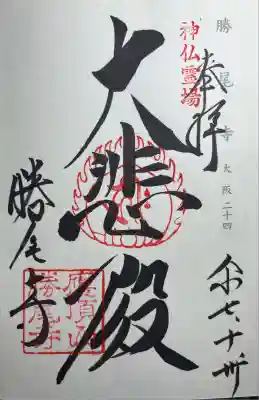 勝尾寺 大阪二十四
奉拝
神仏霊場
大悲殿
勝尾寺
應頂山
勝尾寺